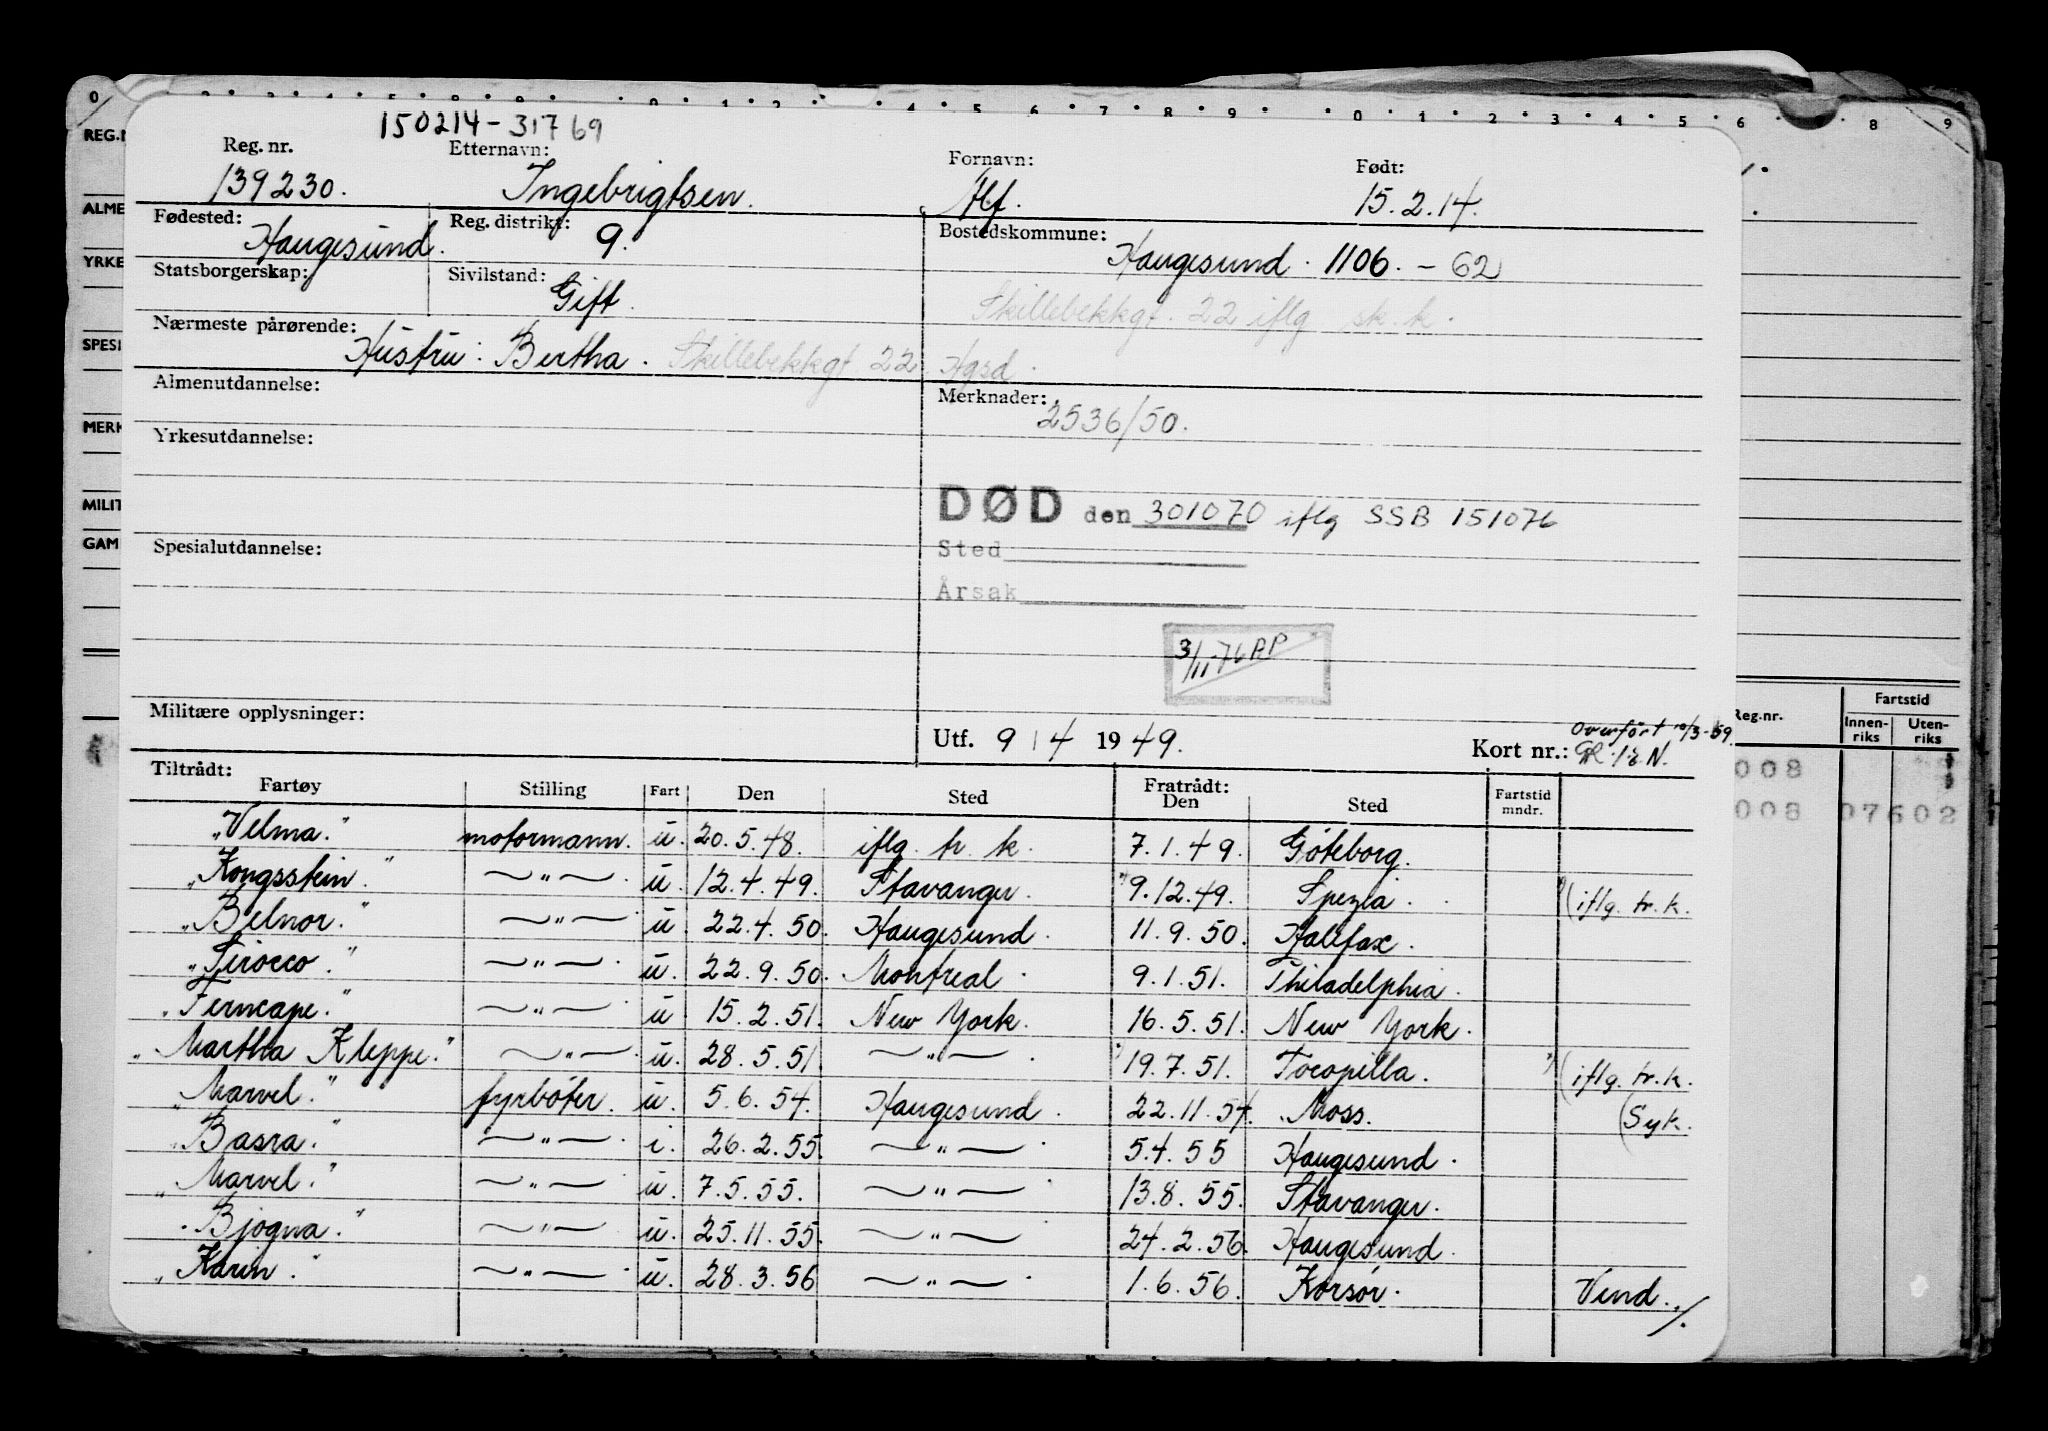 150214-31769
Reg. nr. Etternavn: Fornavn: Født:
139230. Ingebrigtsen. Alf. 15.2.14.
Fødested: Reg. distrikt: Bostedskommune:
Haugesund. 9. Haugesund. 1106. - 62
Statsborgerskap: Sivilstand:
Gift.
Skillebekkgt. 22 iflg sk. k.
Nærmeste pårørende:
Hustru: Bertha. Skillebekkgt. 22. Hgsd.
Almenutdannelse: Merknader:
2536/50.
Yrkesutdannelse:
DØD den 301070 iflg SSB 151076
Spesialutdannelse: Sted
Årsak
3/11-76 AP
Militære opplysninger:
Utf. 9/4 1949. Kort nr.: Overført 10/3-59.
Tiltrådt: Fratrådt:
Fartøy Stilling Fart Den Sted Den Sted Fartstid mndr.
"Velma." motormann. u. 20.5.48. iflg. tr. k. 7.1.49. Göteborg.
"Kongsstein." —"— u. 12.4.49. Stavanger. 9.12.49. Spezia. (iflg. tr. k.
"Belnor." —"— u. 22.4.50. Haugesund. 11.9.50. Halifax.
"Sirocco." —"— u. 22.9.50. Montreal. 9.1.51. Philadelphia.
"Ferncape." —"— u. 15.2.51. New York. 16.5.51. New York.
"Martha Kleppe." —"— u. 28.5.51 —"— 19.7.51. Tocopilla. (iflg. tr. k.
"Marvel." fyrböter. u. 5.6.54. Haugesund. 22.11.54. Moss. (Syk.
"Basra." —"— i. 26.2.55. —"— 5.4.55 Haugesund.
"Marvel." —"— u. 7.5.55. —"— 13.8.55. Stavanger.
"Bjogna." —"— u. 25.11.55. —"— 24.2.56. Haugesund.
"Karin." —"— u. 28.3.56 —"— 1.6.56. Korsör. Vend ./.
REG.N
ALME
YRKE
SPESI
MERK
MILIT
GAM
Reg.nr. Fartstid
Innen-riks Uten-riks
008
008 07602